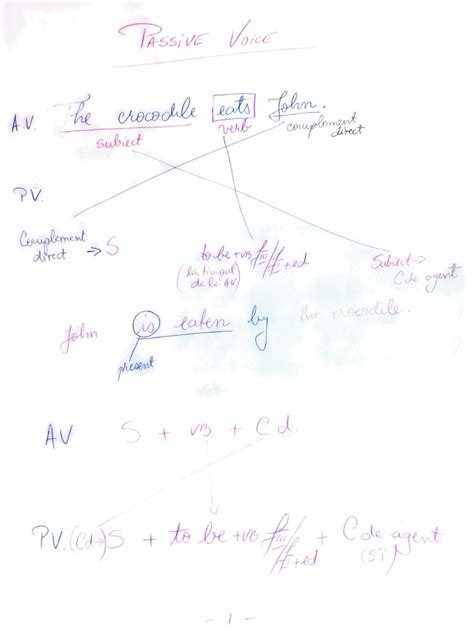 PASSIVE VOICE
A.V. The crocodile eats John.
subiect verb complement direct
PV.
Complement direct → S
to be + VB f III / I + ed
(la timpul de la AV)
Subiect → C de agent
John is eaten by the crocodile.
present
AV S + VB + Cd.
PV. (Cd→) S + to be + VB f III / I + ed + C de agent
- 1 -